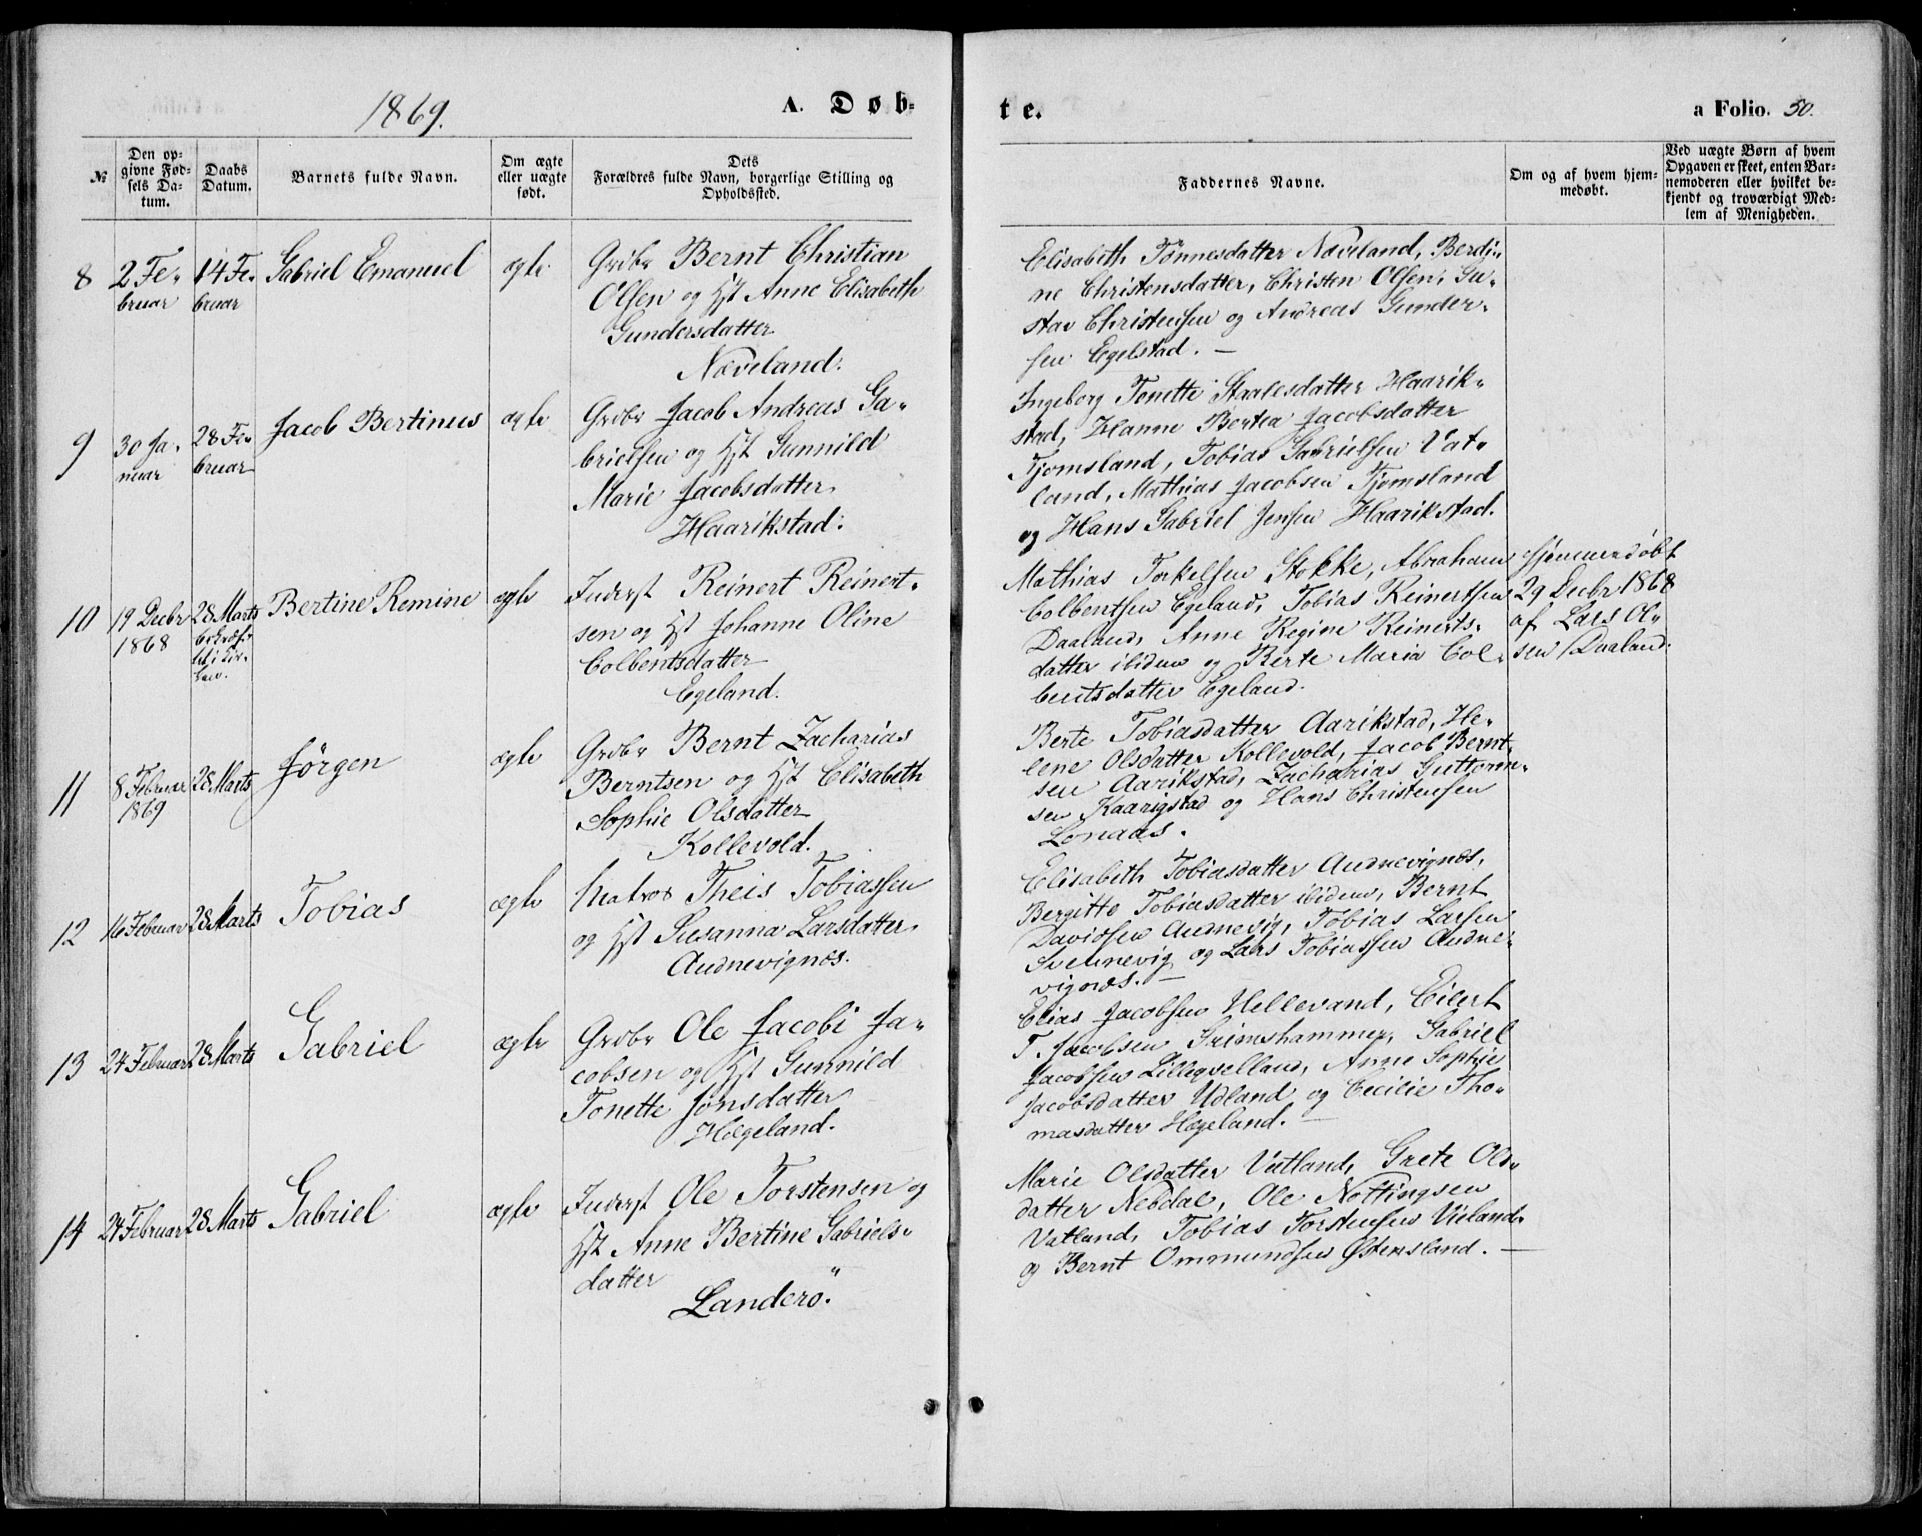 1869.
A. Døb-
te.
a Folio. 50.
№
Den op-
givne Fød-
sels Da-
tum.
Daabs
Datum.
Barnets fulde Navn.
Om ægte
eller uægte
født.
Dets
Forældres fulde Navn, borgerlige Stilling og
Opholdssted.
Faddernes Navne.
Om og af hvem hjem-
medøbt.
Ved uægte Børn af hvem
Opgaven er skeet, enten Bar-
nemoderen eller hvilket be-
kjendt og troværdigt Med-
lem af Menigheden.
8
2 Fe-
bruar
14 Fe-
bruar
Gabriel Emanuel
ægte
Grdbr Bernt Christian
Olsen og Hst Anne Elisabeth
Gundersdatter
Næveland.
Elisabeth Tönnesdatter Næveland, Berdi-
ne Christensdatter, Christen Olsen, Gu-
stav Christensen og Andreas Gunder-
sen Egelstad. —
9
30 Ja-
nuar
28 Fe-
bruar
Jacob Bertinus
ægte
Grdbr Jacob Andreas Ga-
brielsen og Hst Gunnild
Marie Jacobsdatter
Haarikstad.
Ingeborg Tonette Staalesdatter Haarik-
stad, Hanne Bertea Jacobsdatter
Tjomsland, Tobias Gabrielsen Vat-
land, Mathias Jacobsen Tjomsland
og Hans Gabriel Jensen Haarikstad.
10
19 Decbr
1868
28 Marts
bekræf-
tet i Kir-
ken.
Bertine Remine
ægte
Inderst Reinert Reinert-
sen og Hst Johanne Oline
Colbentsdatter
Egeland.
Mathias Torkelsen Stokke, Abraham
Colbentsen Egeland, Tobias Reinertsen
Daaland, Anne Regine Reinerts-
datter ibidem og Berte Maria Col-
bentsdatter Egeland.
Hjemmedøbt
29 Decbr 1868
af Lars Ol-
sen Daaland.
11
8 Februar
1869
28 Marts
Jörgen
ægte
Grdbr Bernt Zacharias
Berntsen og Hst Elisabeth
Sophie Olsdatter
Kollevold.
Berte Tobiasdatter Aarikstad, He-
lene Olsdatter Kollevold, Jacob Bernt-
sen Aarikstad, Zacharias Guttorm-
sen Kaarigstad og Hans Christensen
Lonaas.
12
16 Februar
28 Marts
Tobias
ægte
Matros Theis Tobiassen
og Hst Susanna Larsdatter
Audnevignæs.
Elisabeth Tobiasdatter Audnevignæs,
Bergitte Tobiasdatter ibidem, Bernt
Davidsen Audnevig, Tobias Larsen
Svennevig og Lars Tobiassen Audne-
vignæs. —
13
24 Februar
28 Marts
Gabriel
ægte
Grdbr Ole Jacobi Ja-
cobsen og Hst Gunnild
Tonette Jonsdatter
Hægeland.
Elias Jacobsen Hellevand, Eilert
T. Jacobsen Grimshammer, Gabriel
Jacobsen Lilleqvelland, Anne Sophie
Jacobsdatter Udland og Cecilie Tho-
masdatter Hægeland. —
14
24 Februar
28 Marts
Gabriel
ægte
Inderst Ole Torstensen og
Hst Anne Bertine Gabriels-
datter
Landerö.
Marie Olsdatter Vatland, Grete Ols-
datter Nebdal, Ole Nottingsen
Vatland, Tobias Torstensen Vieland
og Bernt Ommundsen Østensland. —